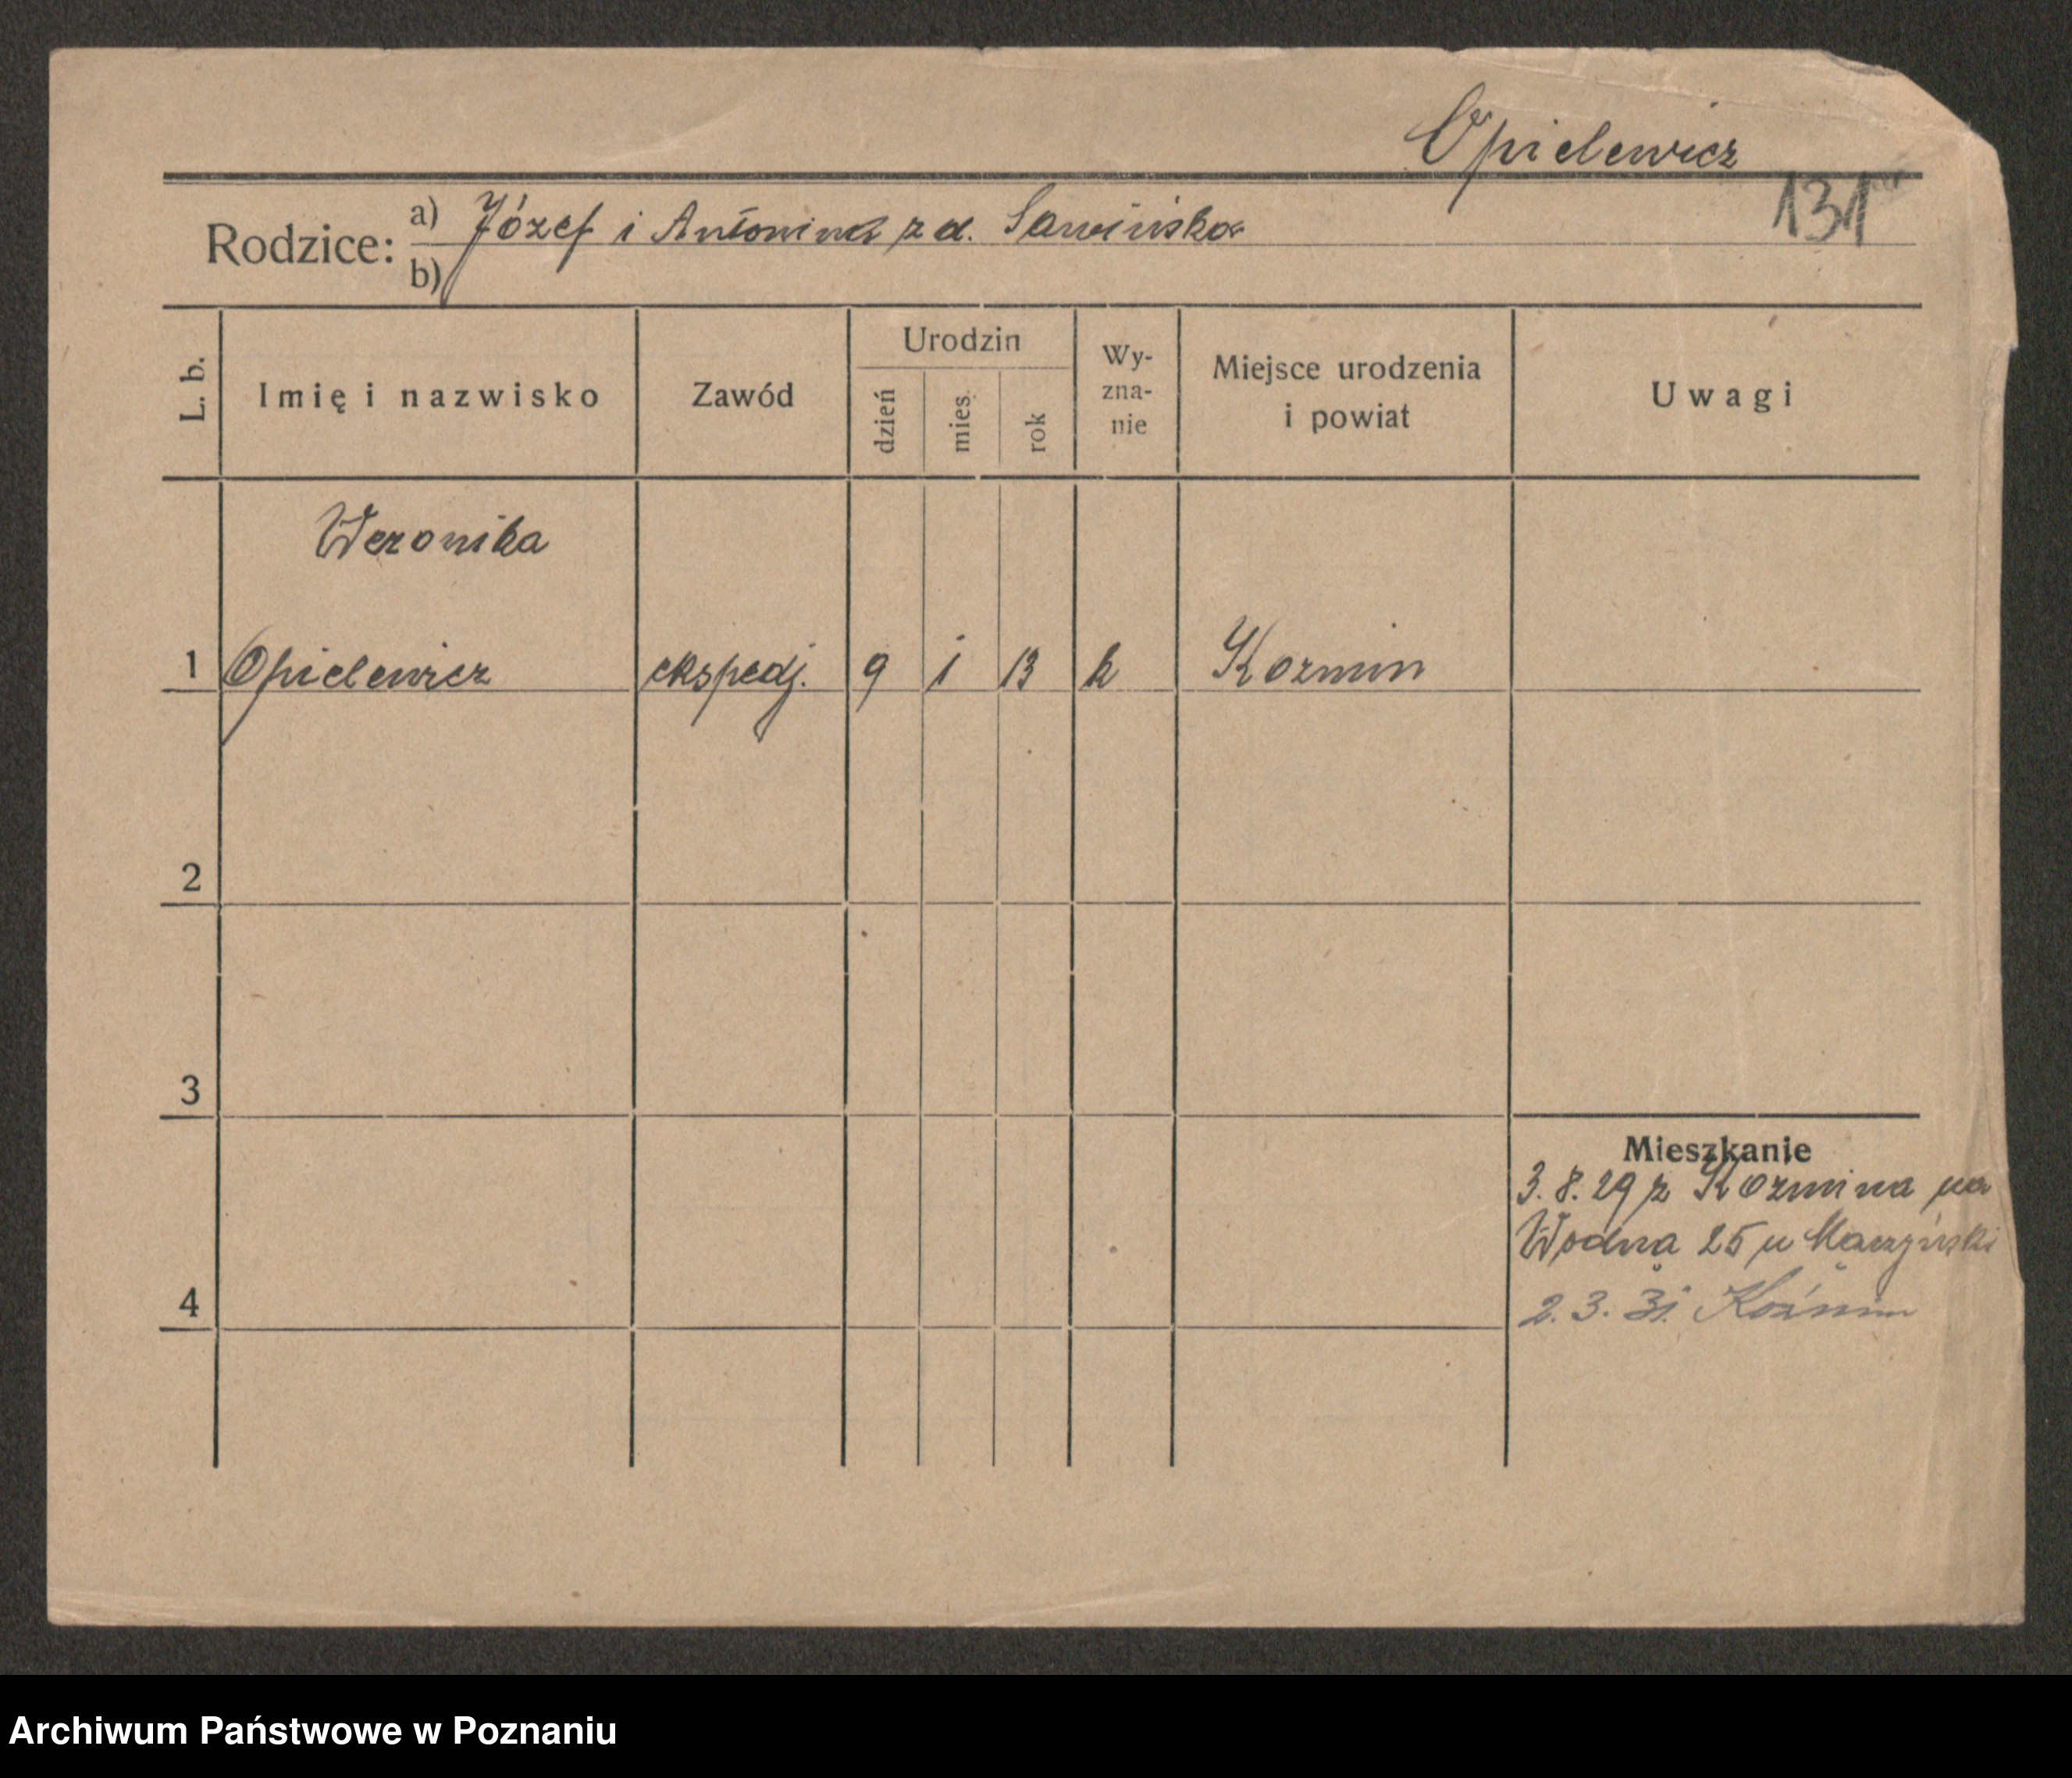 Opielewicz
131
Rodzice: a) Józef i Antonina z d. Sawińska
b)
L. b.
Imię i nazwisko
Zawód
Urodzin
dzień
mies.
rok
Wy-
zna-
nie
Miejsce urodzenia
i powiat
Uwagi
Weronika
1 Opielewicz ekspedj. 9 1 13 k Kozmin
2
3
Mieszkanie
3. 8. 29 z Kozmina na
Wodna 25 u
4
2. 3. 31. Koźmin
Archiwum Państwowe w Poznaniu